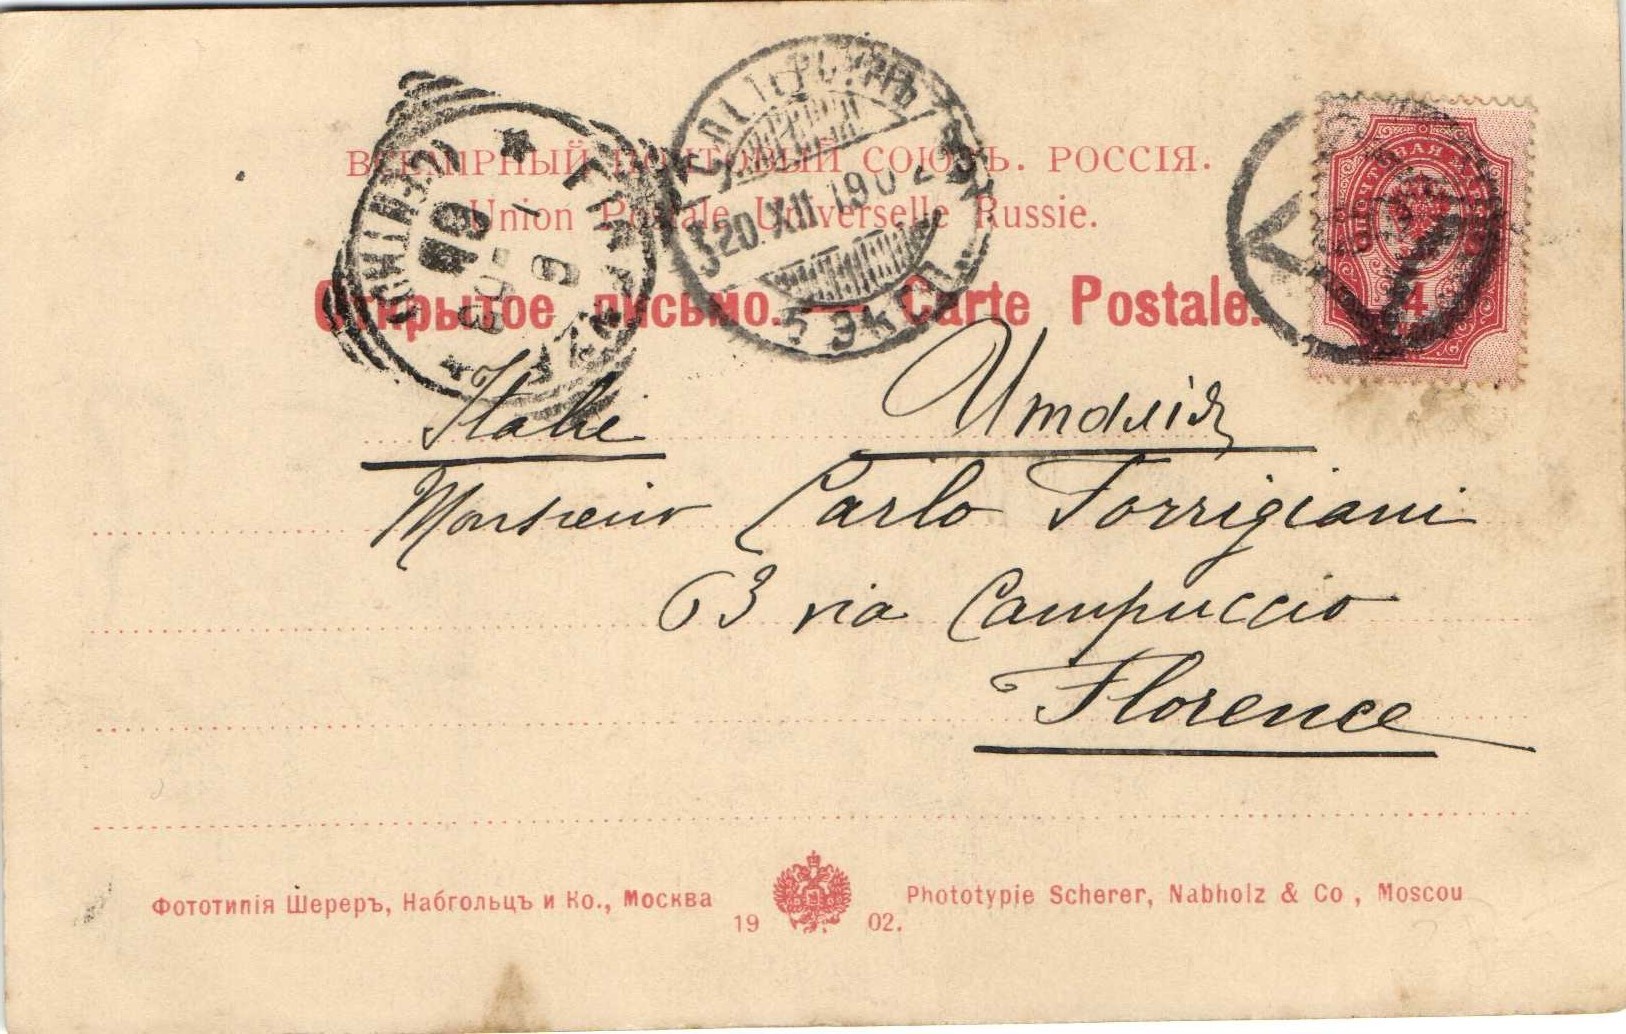 ВСЕМІРНЫЙ ПОЧТОВЫЙ СОЮЗЪ. РОССІЯ.
Union Postale Universelle Russie.
Открытое письмо. — Carte Postale.
20 XII 1902
4
Italie Италія
Monsieur Carlo Torrigiani
63 via Campuccio
Florence
Фототипія Шереръ, Набгольцъ и Ко., Москва
1902.
Phototypie Scherer, Nabholz & Co, Moscou